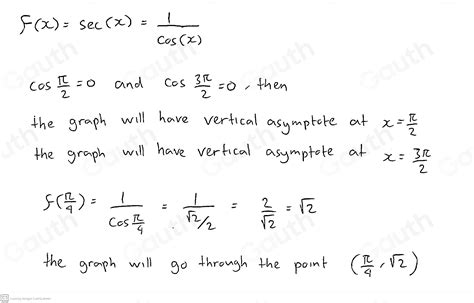 f(x) = sec(x) = 1/cos(x)
cos π/2 = 0 and cos 3π/2 = 0, then
the graph will have vertical asymptote at x = π/2
the graph will have vertical asymptote at x = 3π/2
f(π/4) = 1/cos π/4 = 1/√2/2 = 2/√2 = √2
the graph will go through the point (π/4, √2)